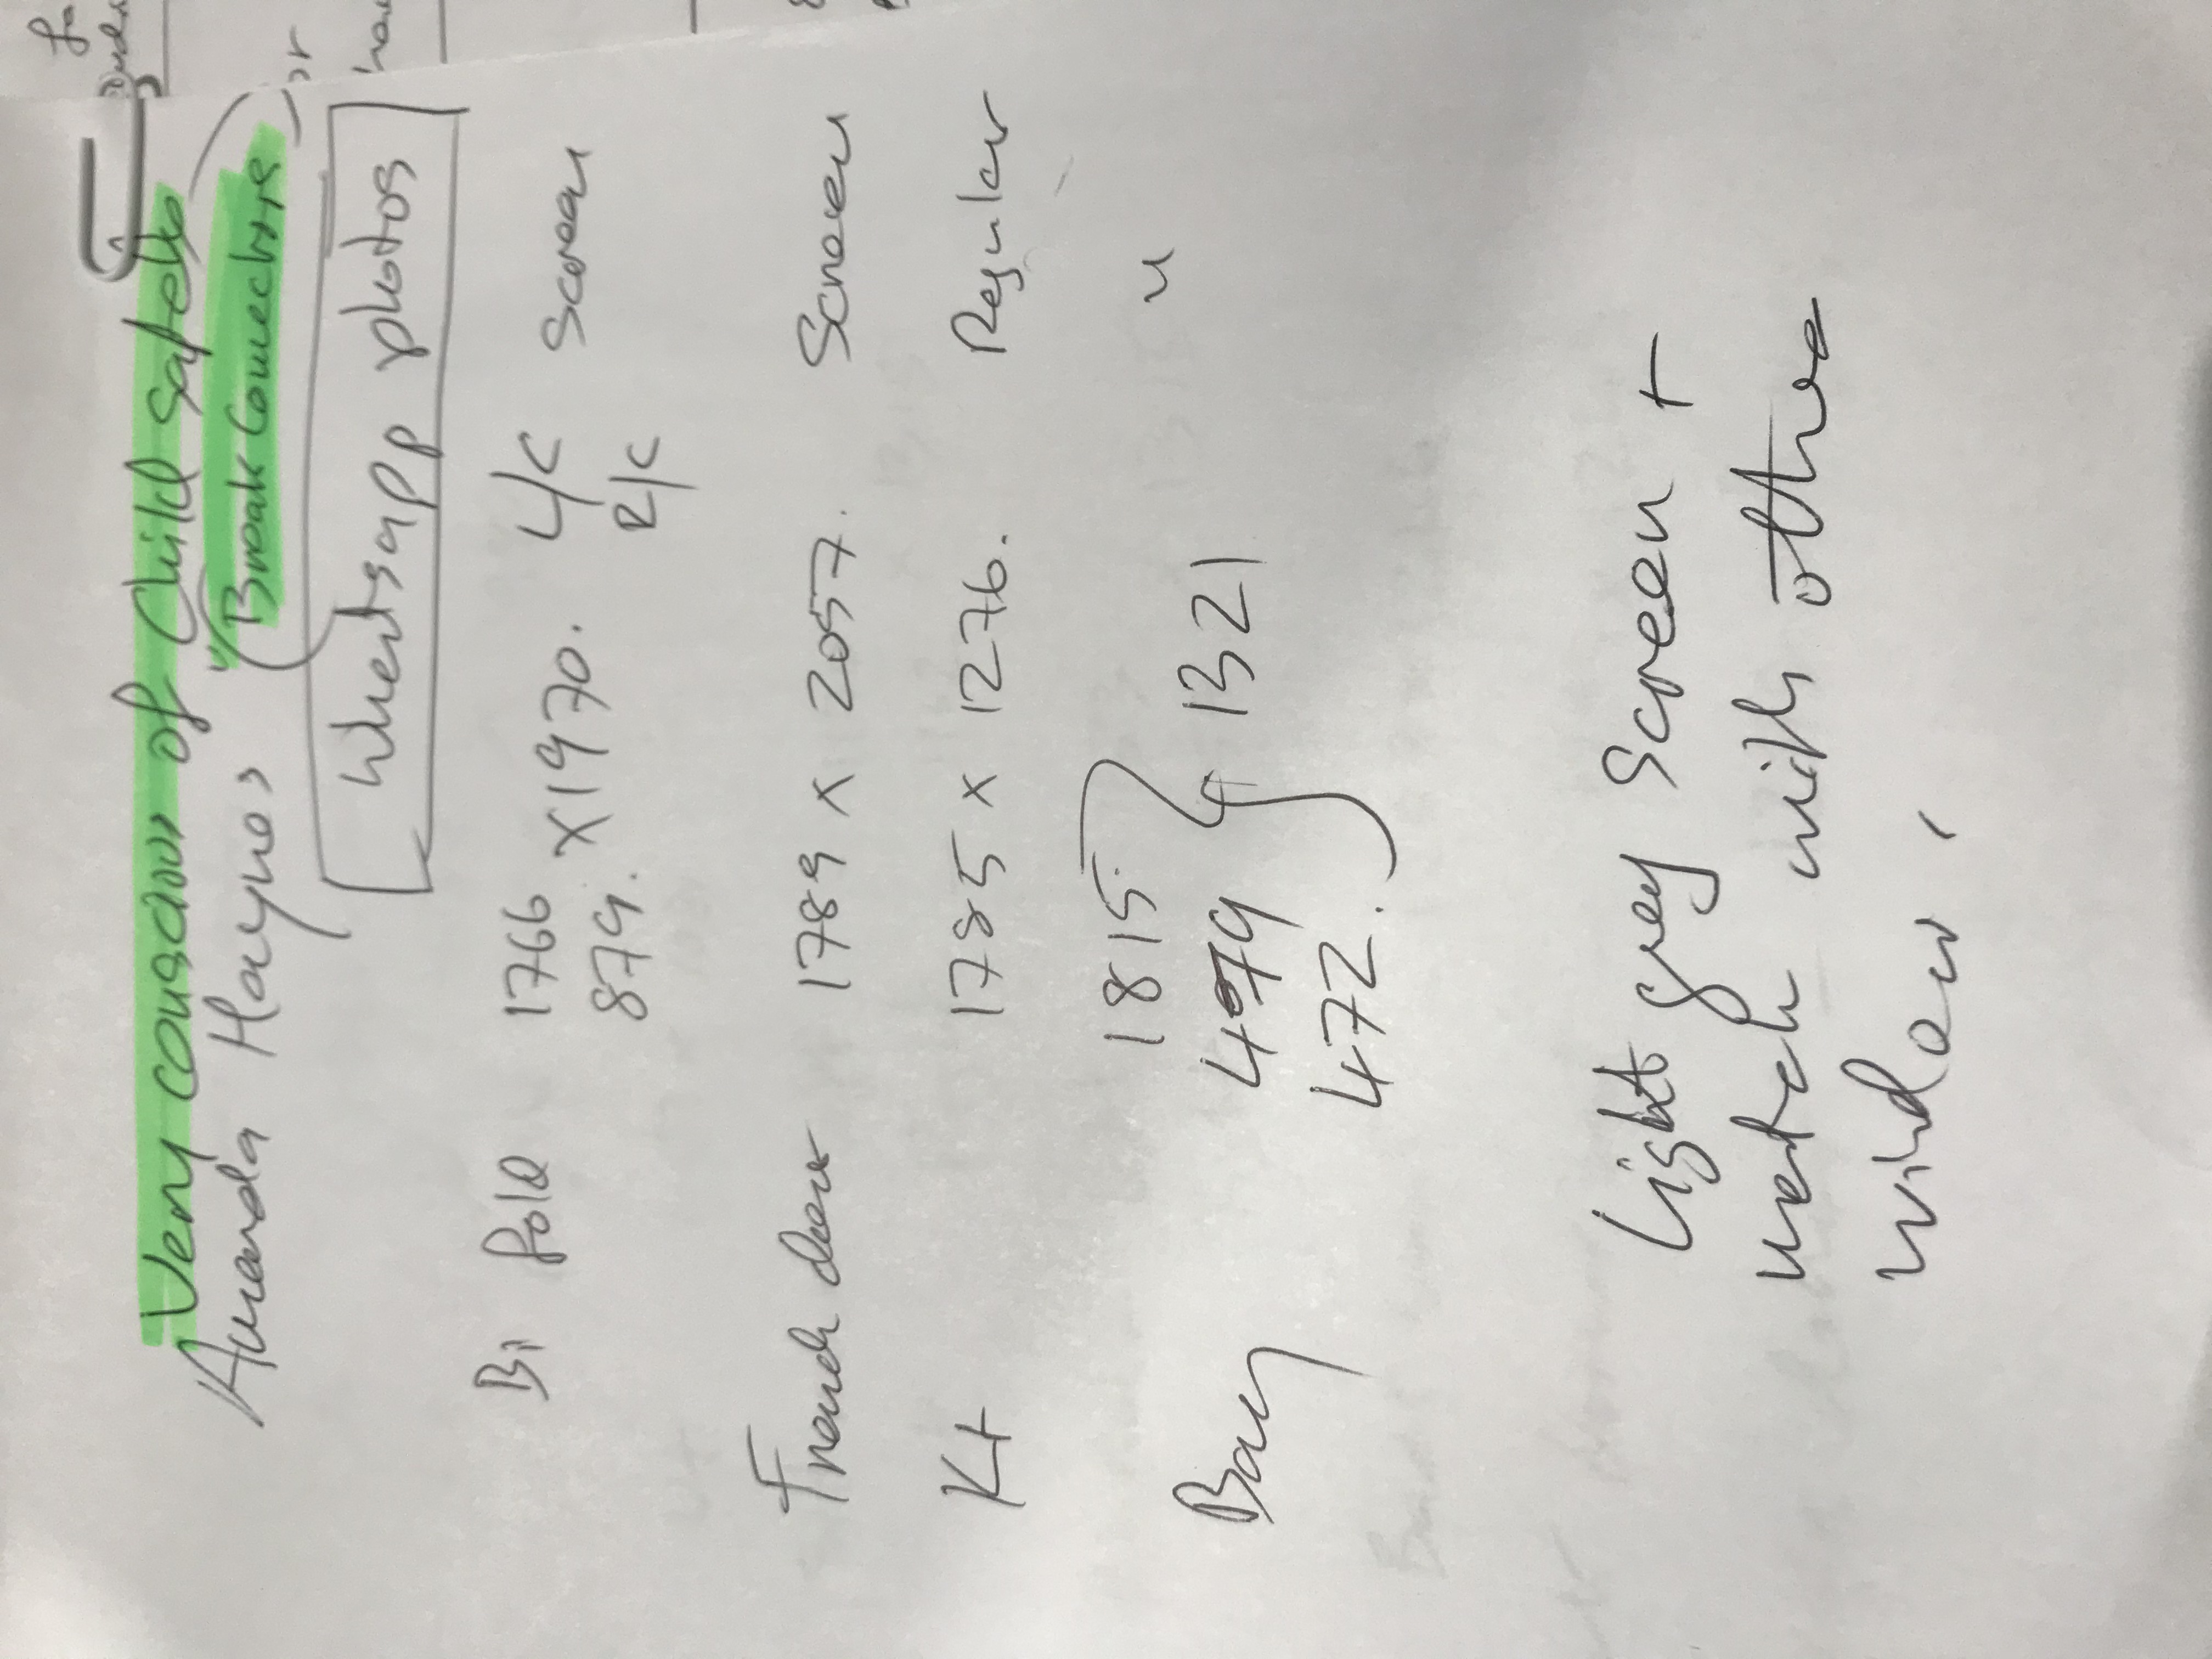 Very conscious of Child Safety
Amanda Haynes "Break Connectors"
Whatsapp photos
Bi fold 1766 x 1970. L/C Screen
879. R/C
French door 1789 x 2057. Screen
Kt 1785 x 1276. Regular
1815 "
Bay 479 1321
472.
Light grey Screen +
match with other
window,